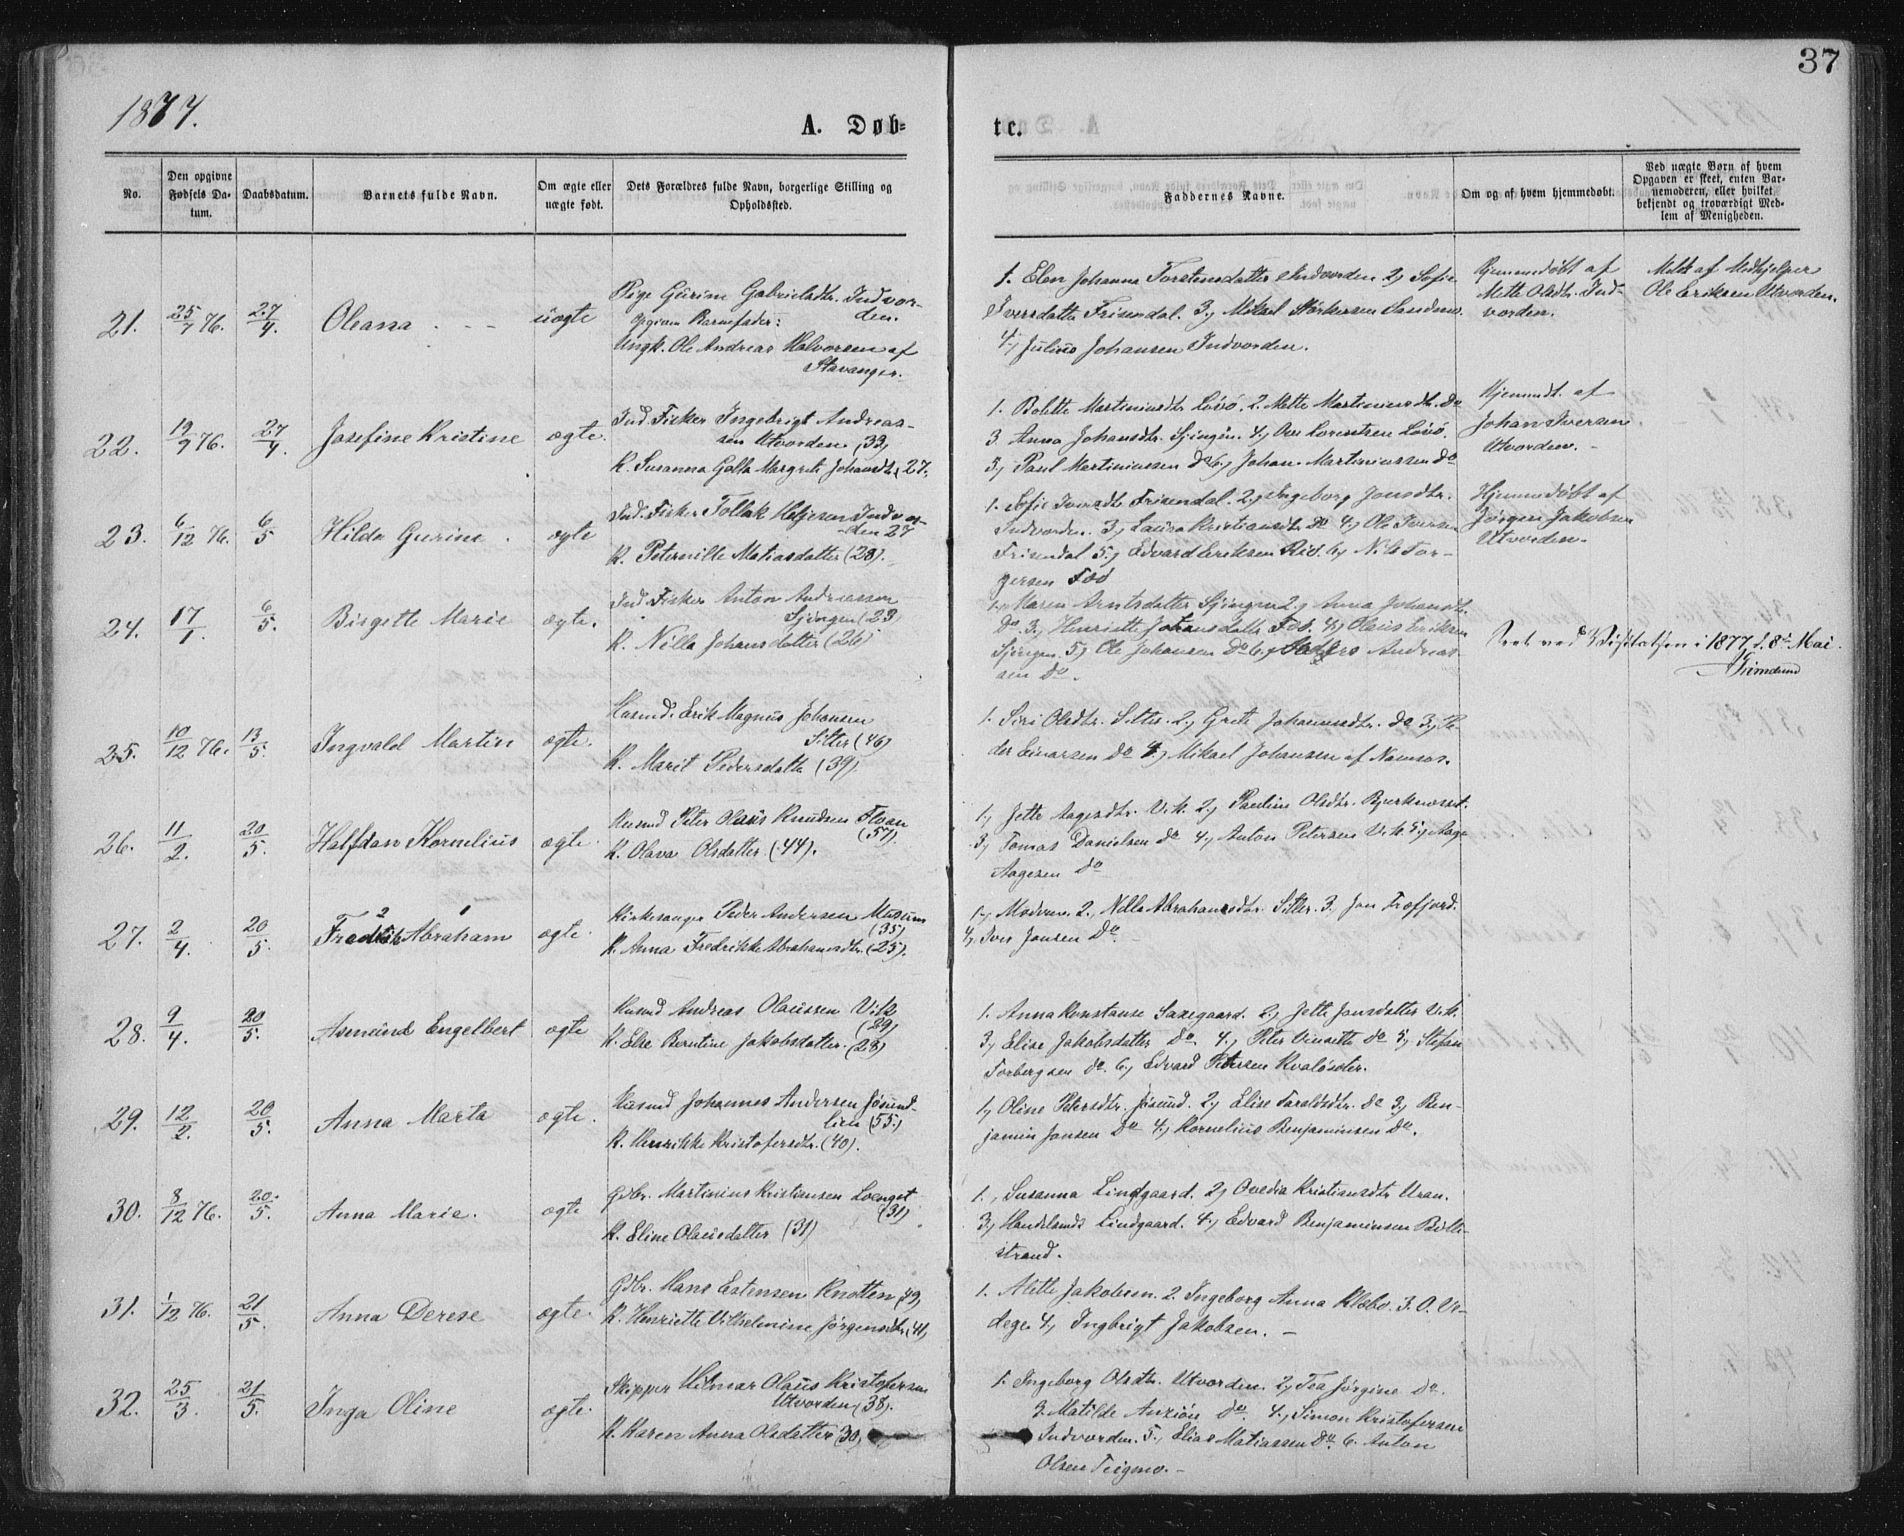 37
1877.
A. Døb-
te.
No.
Den opgivne Fødsels Da-tum.
Daabsdatum.
Barnets fulde Navn.
Om ægte eller uægte født.
Dets Forældres fulde Navn, borgerlige Stilling og Opholdssted.
Faddernes Navne.
Om og af hvem hjemmedøbt.
Ved uægte Børn af hvem Opgaven er skeet, enten Bar-nemoderen, eller hvilket bekjendt og troværdigt Med-lem af Menigheden.
21. 25/7 76. 27/4. Oleana uægte
Pige Gurine Gabrielsdtr. Indvor-
den.
Opgiven Barnefader:
Ungk. Ole Andreas Halvorsen af
Stavanger.
1. Elen Johanna Torstensdatter Indvorden 2, Sofie
Iversdatter Frisendal. 3, Mikael Størkersen
4, Julius Johansen Indvorden.
Hjemmedøbt af
Mette Olsdtr. Ind-
vorden.
Meldt af Medhjelper
Ole Eriksen Utvorden.
22. 19/9 76. 27/4. Josefine Kristine ægte.
Ind. Fisker Ingebrigt Andreas-
sen Utvorden (33)
K. Susanna Margrete Johansdtr. 27.
1. Bolette Martiniusdtr. Lövö. 2. Mette Martiniusdtr. do
3. Anna Johansdtr. Sjingen. 4, Ove Lorentsen Lövö.
5, Paul Martiniussen do 6, Johan Martiniussen do
Hjemmdt. af
Johan Iversen
Utvorden.
23. 6/12 76. 6/5 Hilda Gurine. ægte
Ind. Fisker Tollak Indvor-
den 27
K. Peternille Matiasdatter (28).
1. Sofie Iversdtr. Frisendal. 2, Ingeborg Jonsdtr.
Indvorden. 3, Laura Kristiansdtr. do 4, Ole Iversen
Frisendal 5, Edvard Eriksen 6, Nils Tor-
gersen Fos
Hjemmedöbt af
Jørgen Jakobsen
Utvorden.
24. 17/1. 6/5. Birgitte Marie ægte.
Ind. Fisker Anton Andreassen
Sjingen (23)
K. Nilla Johansdatter (26)
1, Maren Arntsdatter Sjingen 2, Anna Johansdtr.
do 3, Henriette Johansdatter Fos. 4, Olaus Eriksen
Sjingen. 5, Ole Johansen do 6, Andreas-
sen do.
Seet ved Visitatsen i 1877, d. 8de Mai.
25. 10/12 76. 13/5. Ingvald Martin ægte.
Husmd. Erik Magnus Johansen
Sitter (46)
K. Marit Pedersdatter (39).
1. Siri Olsdtr. Sitter. 2, Grete Johannesdtr. do 3, Pe-
der Einarsen do 4, Mikael Johansen af Namsos.
26. 11/2. 20/5. Halfdan Kornelius ægte.
Husmd Peter Olaus Knudsen Floan
(57)
K. Olava Olsdatter. (44).
1, Jette Aagesdtr. Vik. 2, Pauline Olsdtr. Bjerknæset.
3, Tomas Danielsen do 4, Anton Petersen Vik 5, Aage
Aagesen do
27. 2/4. 20/5. Fredrik Abraham ægte.
2 1
Kirkesanger Peder Andersen Musum
(35)
K. Anna Fredrikke Abrahamsdtr. (25).
1, Moderen. 2, Nella Abrahamsdtr. Sitter. 3. Jon Træfjord.
4, Iver Jonsen do.
28. 9/4. 20/5. Asmund Engelbert ægte
Husmd Andreas Olaussen Vik
(29)
K. Else Berntine Jakobsdatter. (28)
1. Anna Konstanse Saxegaard. 2, Jette Jonsdatter Vik.
3, Elise Jakobsdatter do 4, Peter do 5, Stefan
Torbergsen do. 6, Edvard Petersen Kvalösæter.
29. 12/2. 20/5. Anna Marta ægte.
Husmd Johannes Andersen Jösund-
lien (55)
K. Henrikke Kristofersdtr. (40).
1, Oline Petersdtr. Jösund. 2, Elise Taraldsdtr. do 3, Ben-
jamin Jonsen do 4, Kornelius Benjaminsen do.
30. 8/12 76. 20/5. Anna Marie. ægte
Gdbr. Martinius Kristiansen
(31)
K. Eline Olausdatter (31)
1, Susanna Lindgaard. 2, Ovedia Kristiansdtr Uran.
3, Handelsmd Lindgaard. 4, Edvard Benjaminsen
strand.
31. 1/12 76. 21/5. Anna Derese ægte.
Gdbr. Hans Estensen Knotten (49)
K. Henriette Vilhelmine Jörgensdtr. (41)
1. Mette Jakobsen. 2. Ingeborg Anna Klæbo. 3. O. Ve-
dege 4, Ingbrigt Jakobsen.
32. 25/3. 21/5. Inga Oline ægte.
Skipper Hilmar Olaus Kristofersen
Utvorden (38).
K. Karen Anna Olsdatter (30)
1. Ingeborg Olsdtr. Utvorden. 2, Tea Jörgine do.
3. Matilde do. 4, Simon Kristofersen
Indvorden. 5, Elias Matiassen do. 6. Anton
Olsen Teigmo.